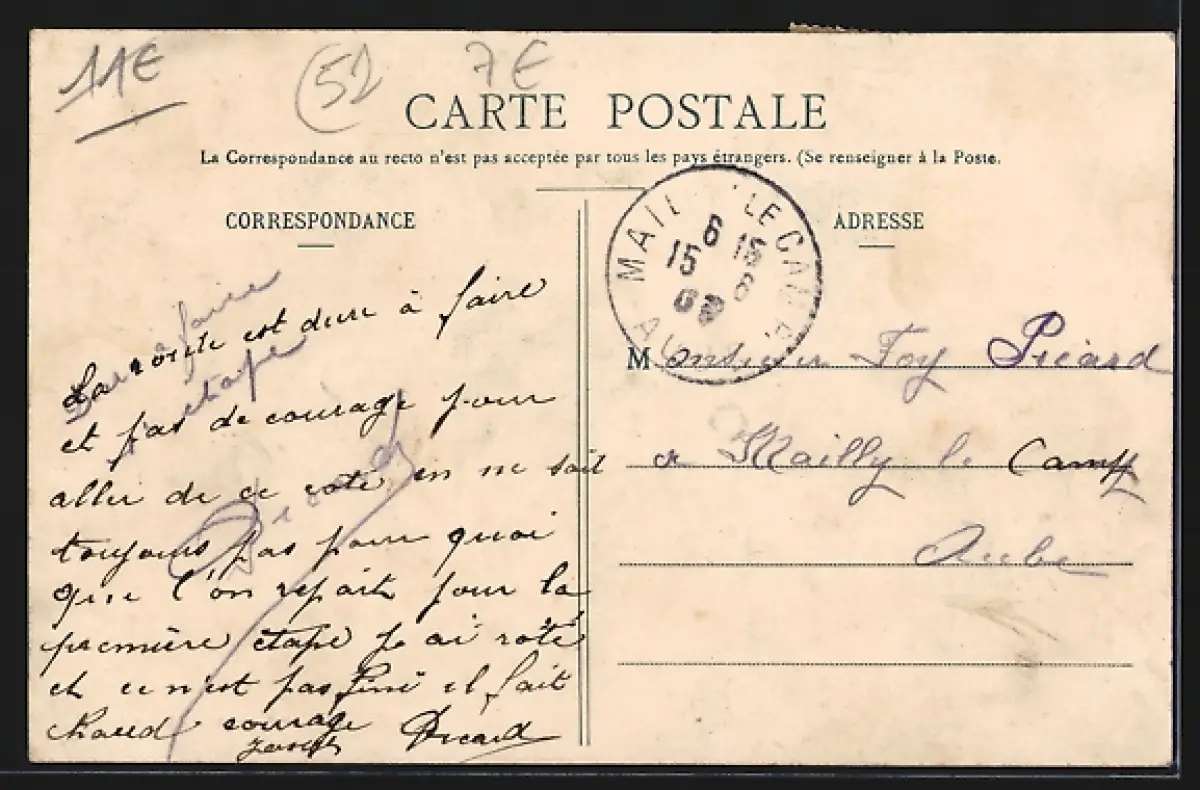 11€
(52
7€
CARTE POSTALE
La Correspondance au recto n'est pas acceptée par tous les pays étrangers. (Se renseigner à la Poste.
CORRESPONDANCE
ADRESSE
MAIL LE CAMP
6 15
15 6
La route est dure à faire
et pas de courage pour
aller de ce coté en ne sait
toujours pas pour quoi
que l'on repart pour la
première etape j ai roté
et ce n'est pas fini il fait
chaud courage Picard
Joseph
faire
etape
Picard
Monsieur Foy Picard
a Mailly le Camp
Aube